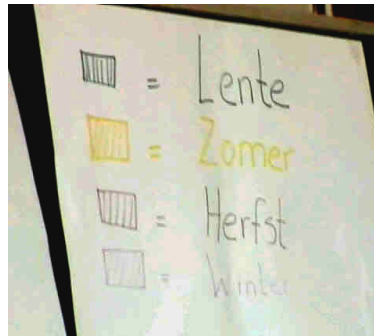 = Lente
= Zomer
= Herfst
= Winter